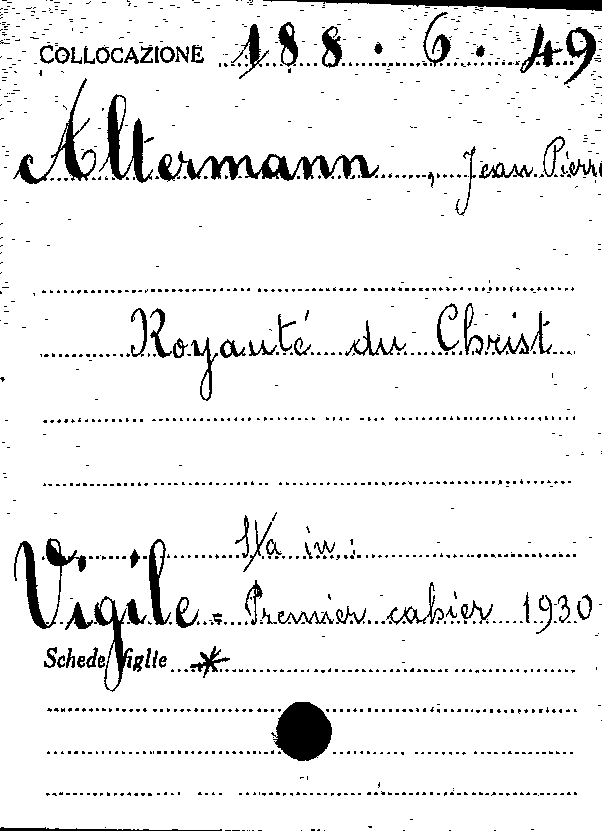 COLLOCAZIONE 188.6.49
Altermann, Jean Pierre
Royauté du Christ
Sta in:
Vigile = Premier cahier 1930
Schede figlie *